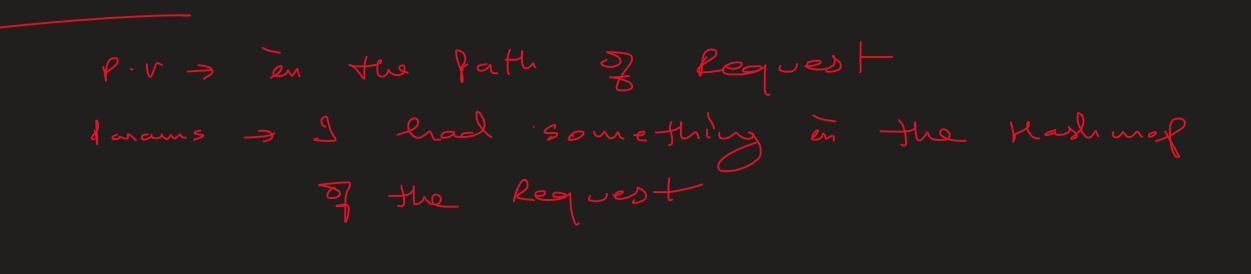 P.V → in the Path of Request
Params → I had something in the Hashmap
of the Request